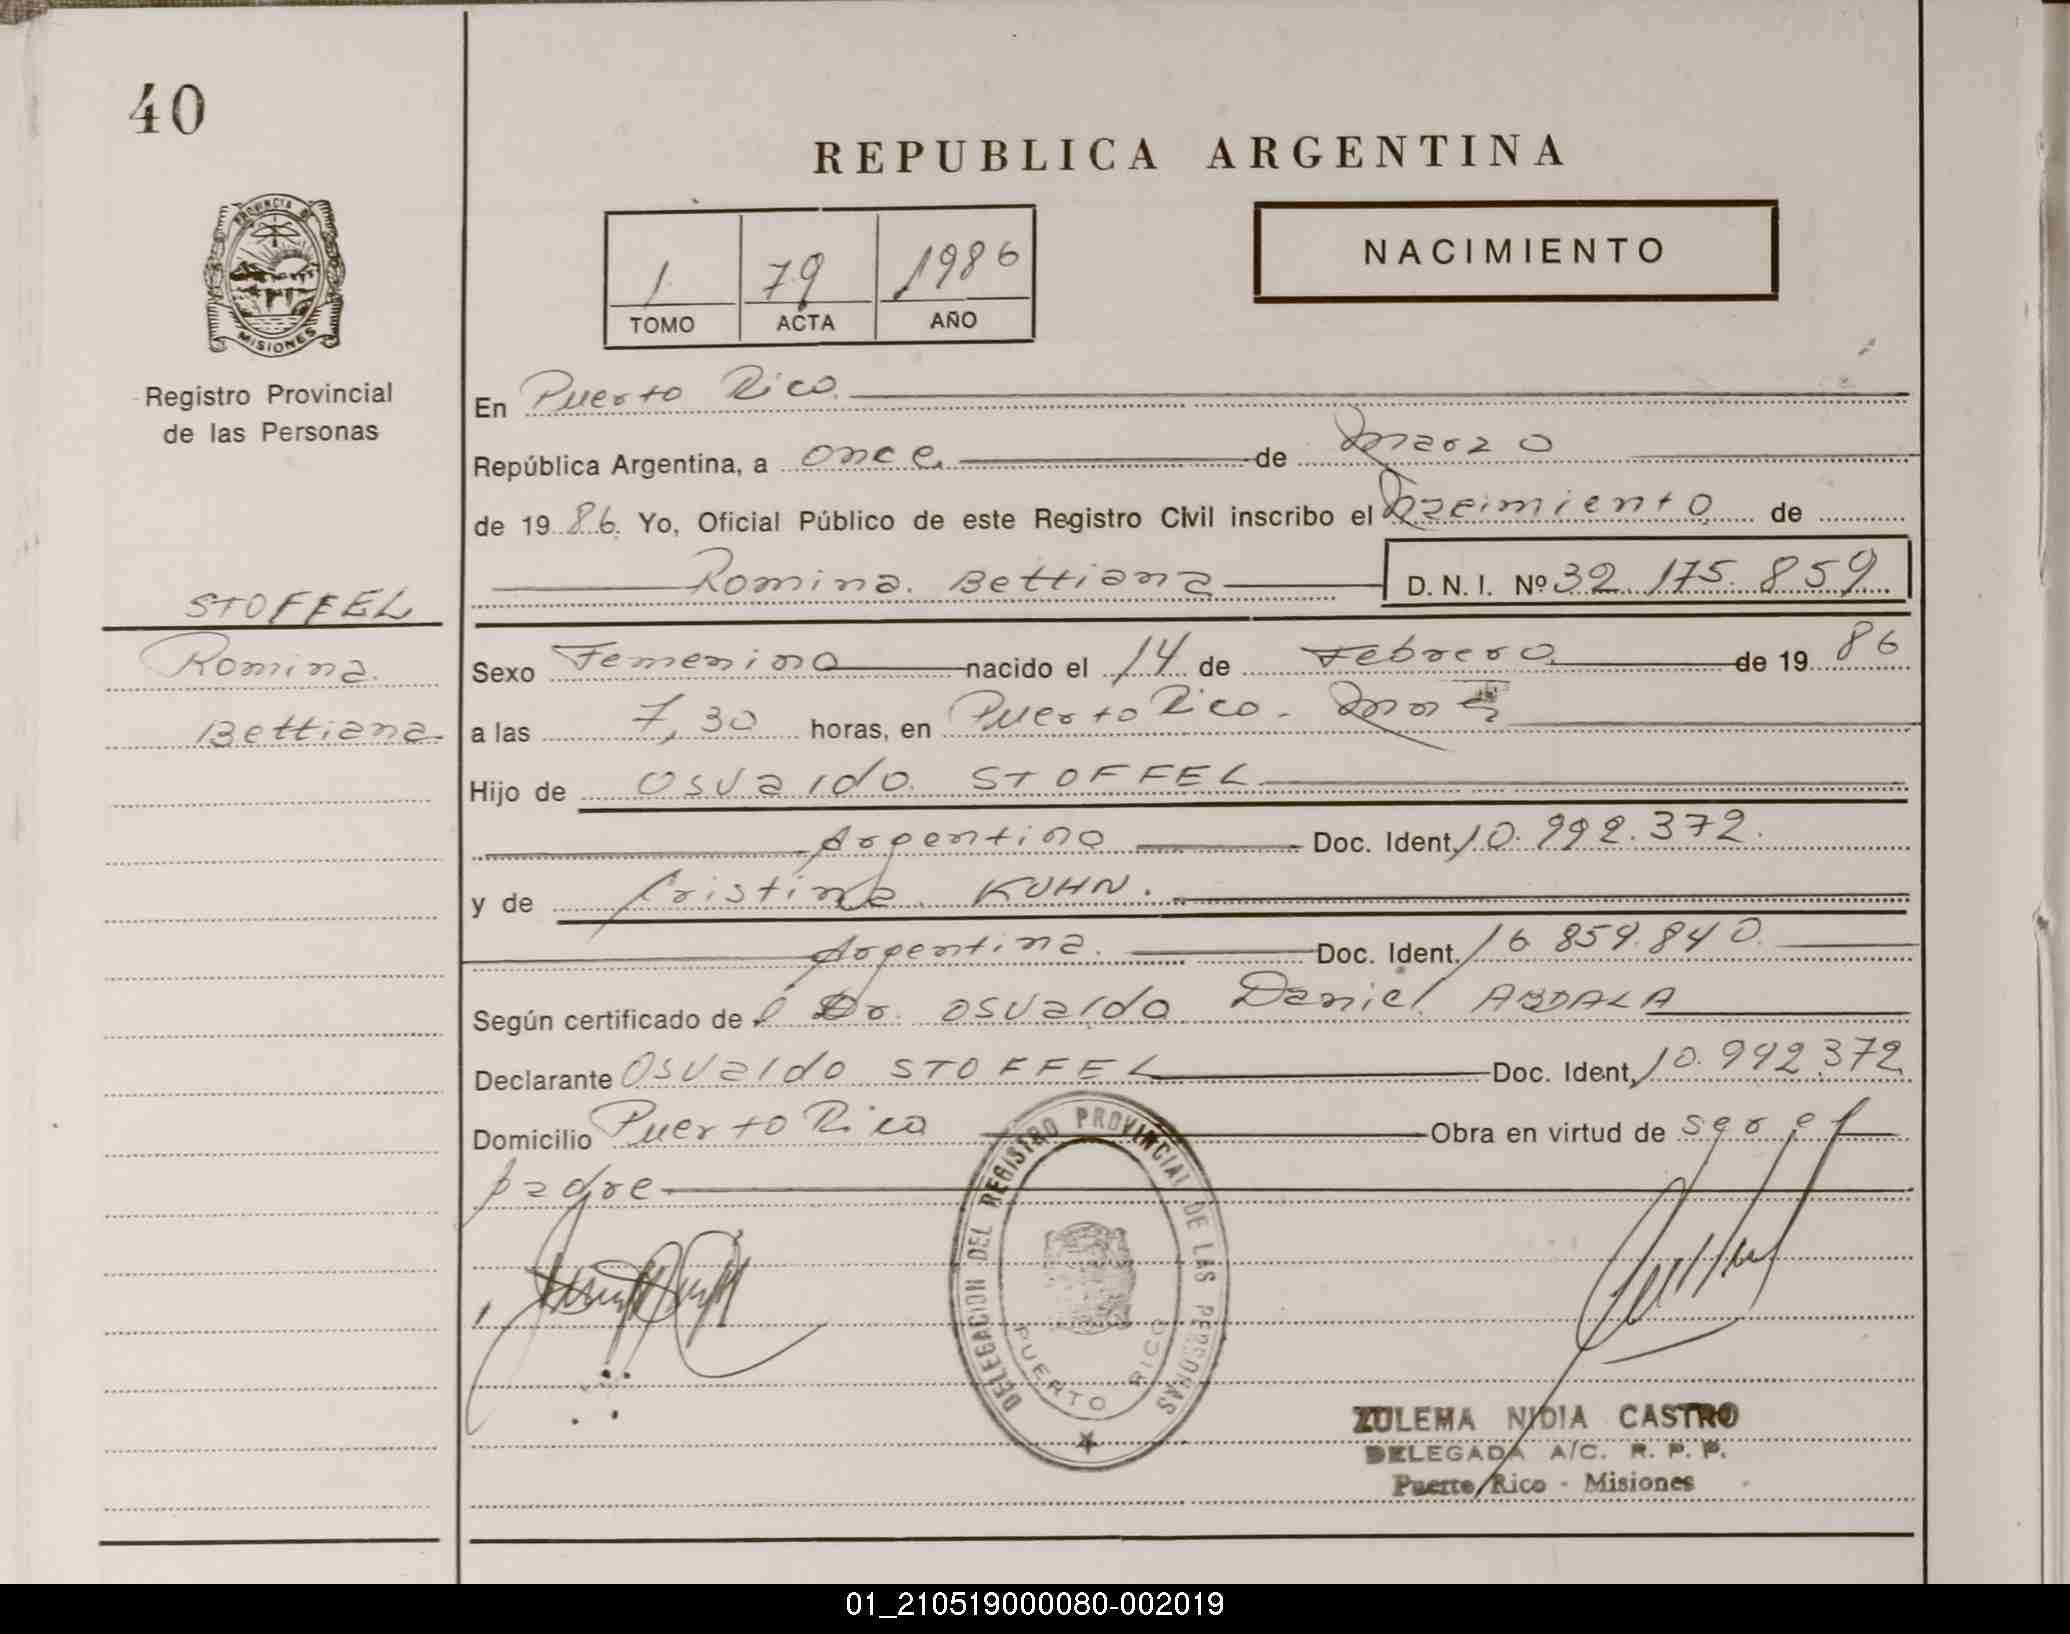 40
REPUBLICA ARGENTINA
PROVINCIA DE
MISIONES
1 79 1986
TOMO ACTA AÑO
NACIMIENTO
Registro Provincial
de las Personas
En Puerto Rico.
República Argentina, a once de Marzo
de 1986. Yo, Oficial Público de este Registro Civil inscribo el Nacimiento de
Romina. Bettiana D. N. I. Nº 32.175.859
STOFFEL
Romina.
Bettiana.
Sexo Femenino nacido el 14 de Febrero de 19 86
a las 7,30 horas, en Puerto Rico - Mnes
Hijo de Osvaldo. STOFFEL
Argentino Doc. Ident. 10.992.372.
y de Cristina. KUHN.
Argentina. Doc. Ident. 16.859.840.
Según certificado del Dr. Osvaldo Daniel ABDALA
Declarante Osvaldo STOFFEL Doc. Ident. 10.992.372
Domicilio Puerto Rico Obra en virtud de ser el
padre
DELEGACION DEL REGISTRO PROVINCIAL DE LAS PERSONAS
PUERTO RICO
ZULEMA NIDIA CASTRO
DELEGADA A/C. R. P. P.
Puerto Rico - Misiones
01_210519000080-002019